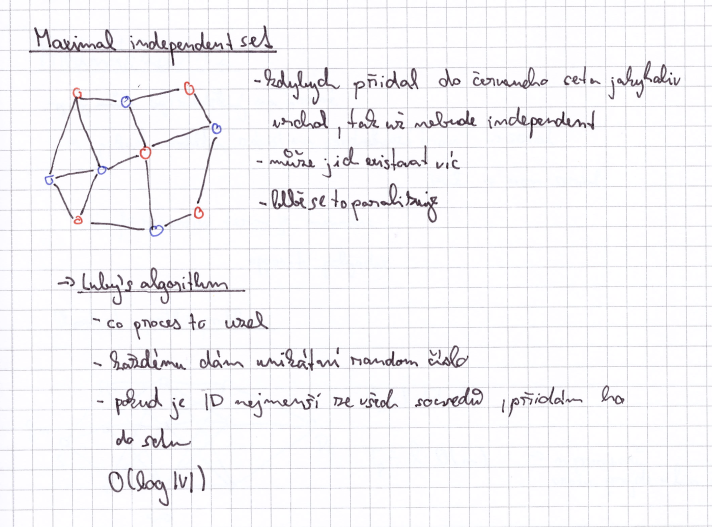 Maximal independent set
- kdybych přidal do červeneho setu jakykoliv
vrchol, tak už nebude independent
- může jich existovat víc
- blbě se to paralizuje
-> Luby's algorithm
- co proces to uzel
- každému dám unikátní random číslo
- pokud je ID nejmenší ze všech sousedů, přidám ho
do setu
O(log |V|)